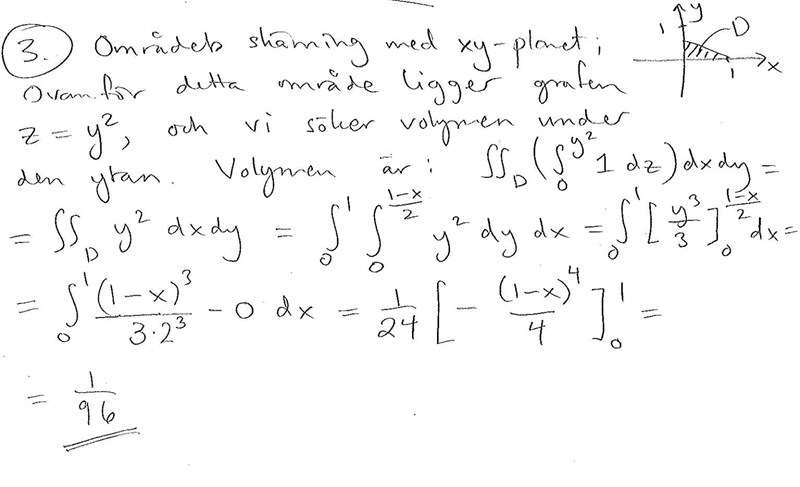 3. Områdets skärning med xy-planet;
y
1
D
1
x
Ovanför detta område ligger grafen
z = y², och vi söker volymen under
den ytan. Volymen är: ∬_D (∫_0^{y²} 1 dz) dx dy =
= ∬_D y² dx dy = ∫_0^1 ∫_0^{(1-x)/2} y² dy dx = ∫_0^1 [y³/3]_0^{(1-x)/2} dx =
= ∫_0^1 (1-x)³/(3·2³) - 0 dx = 1/24 [-(1-x)⁴/4]_0^1 =
= 1/96